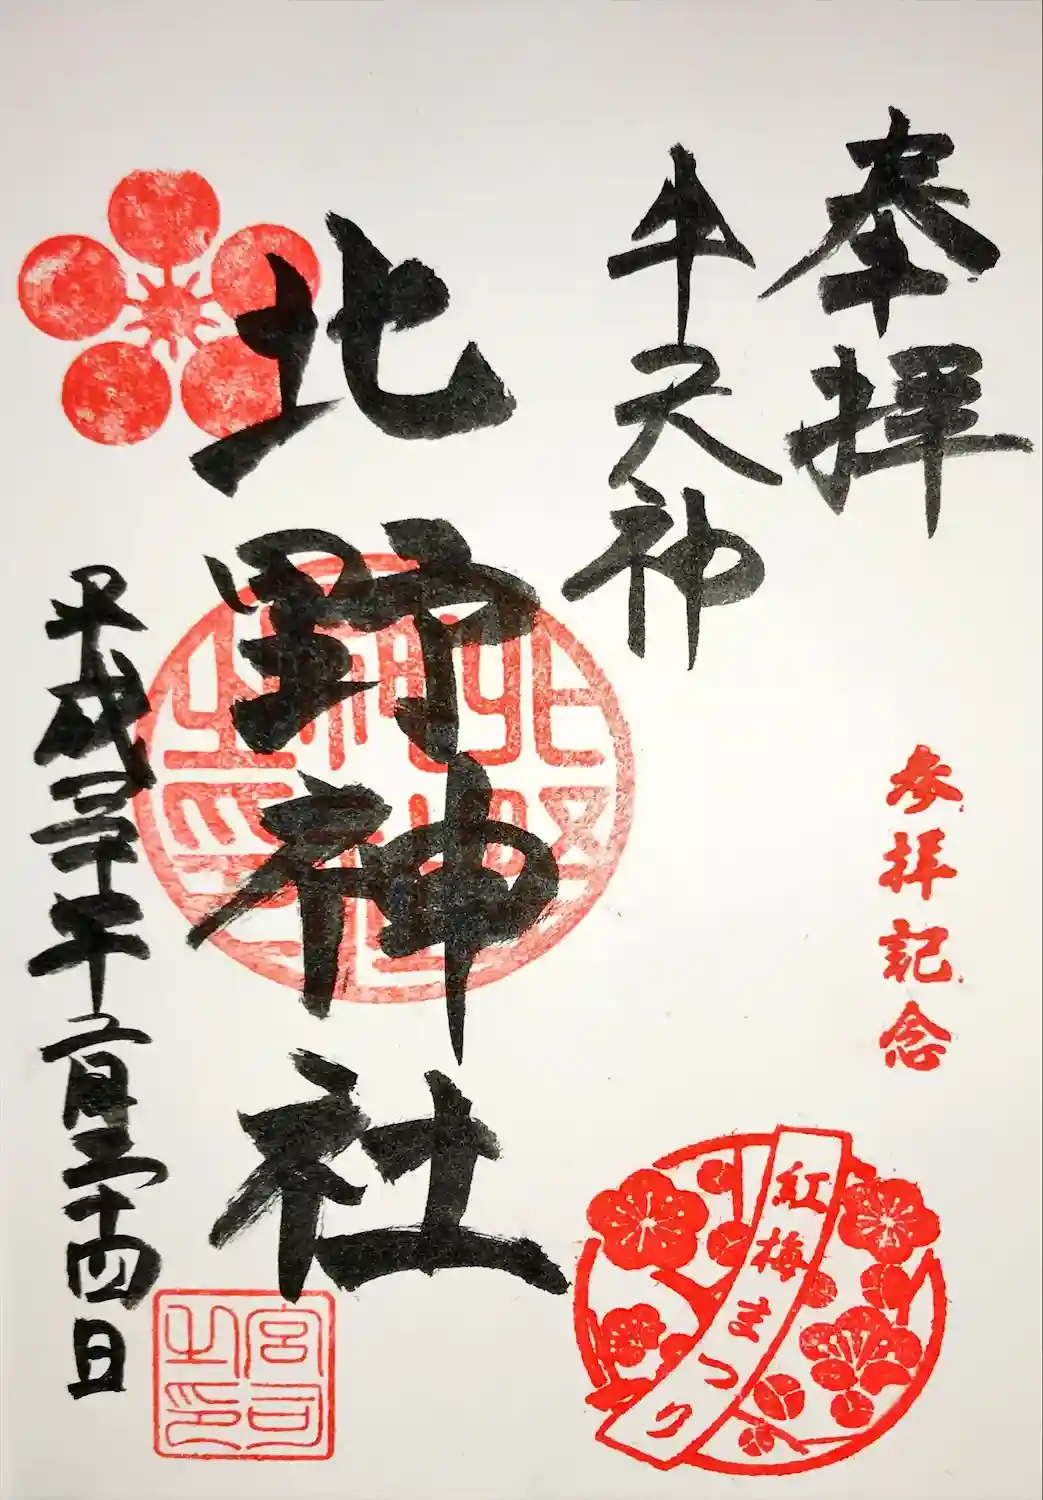 奉拝
牛天神
北野神社
平成三十年二月二十四日
参拝記念
紅梅まつり
北野神社之印
宮司之印